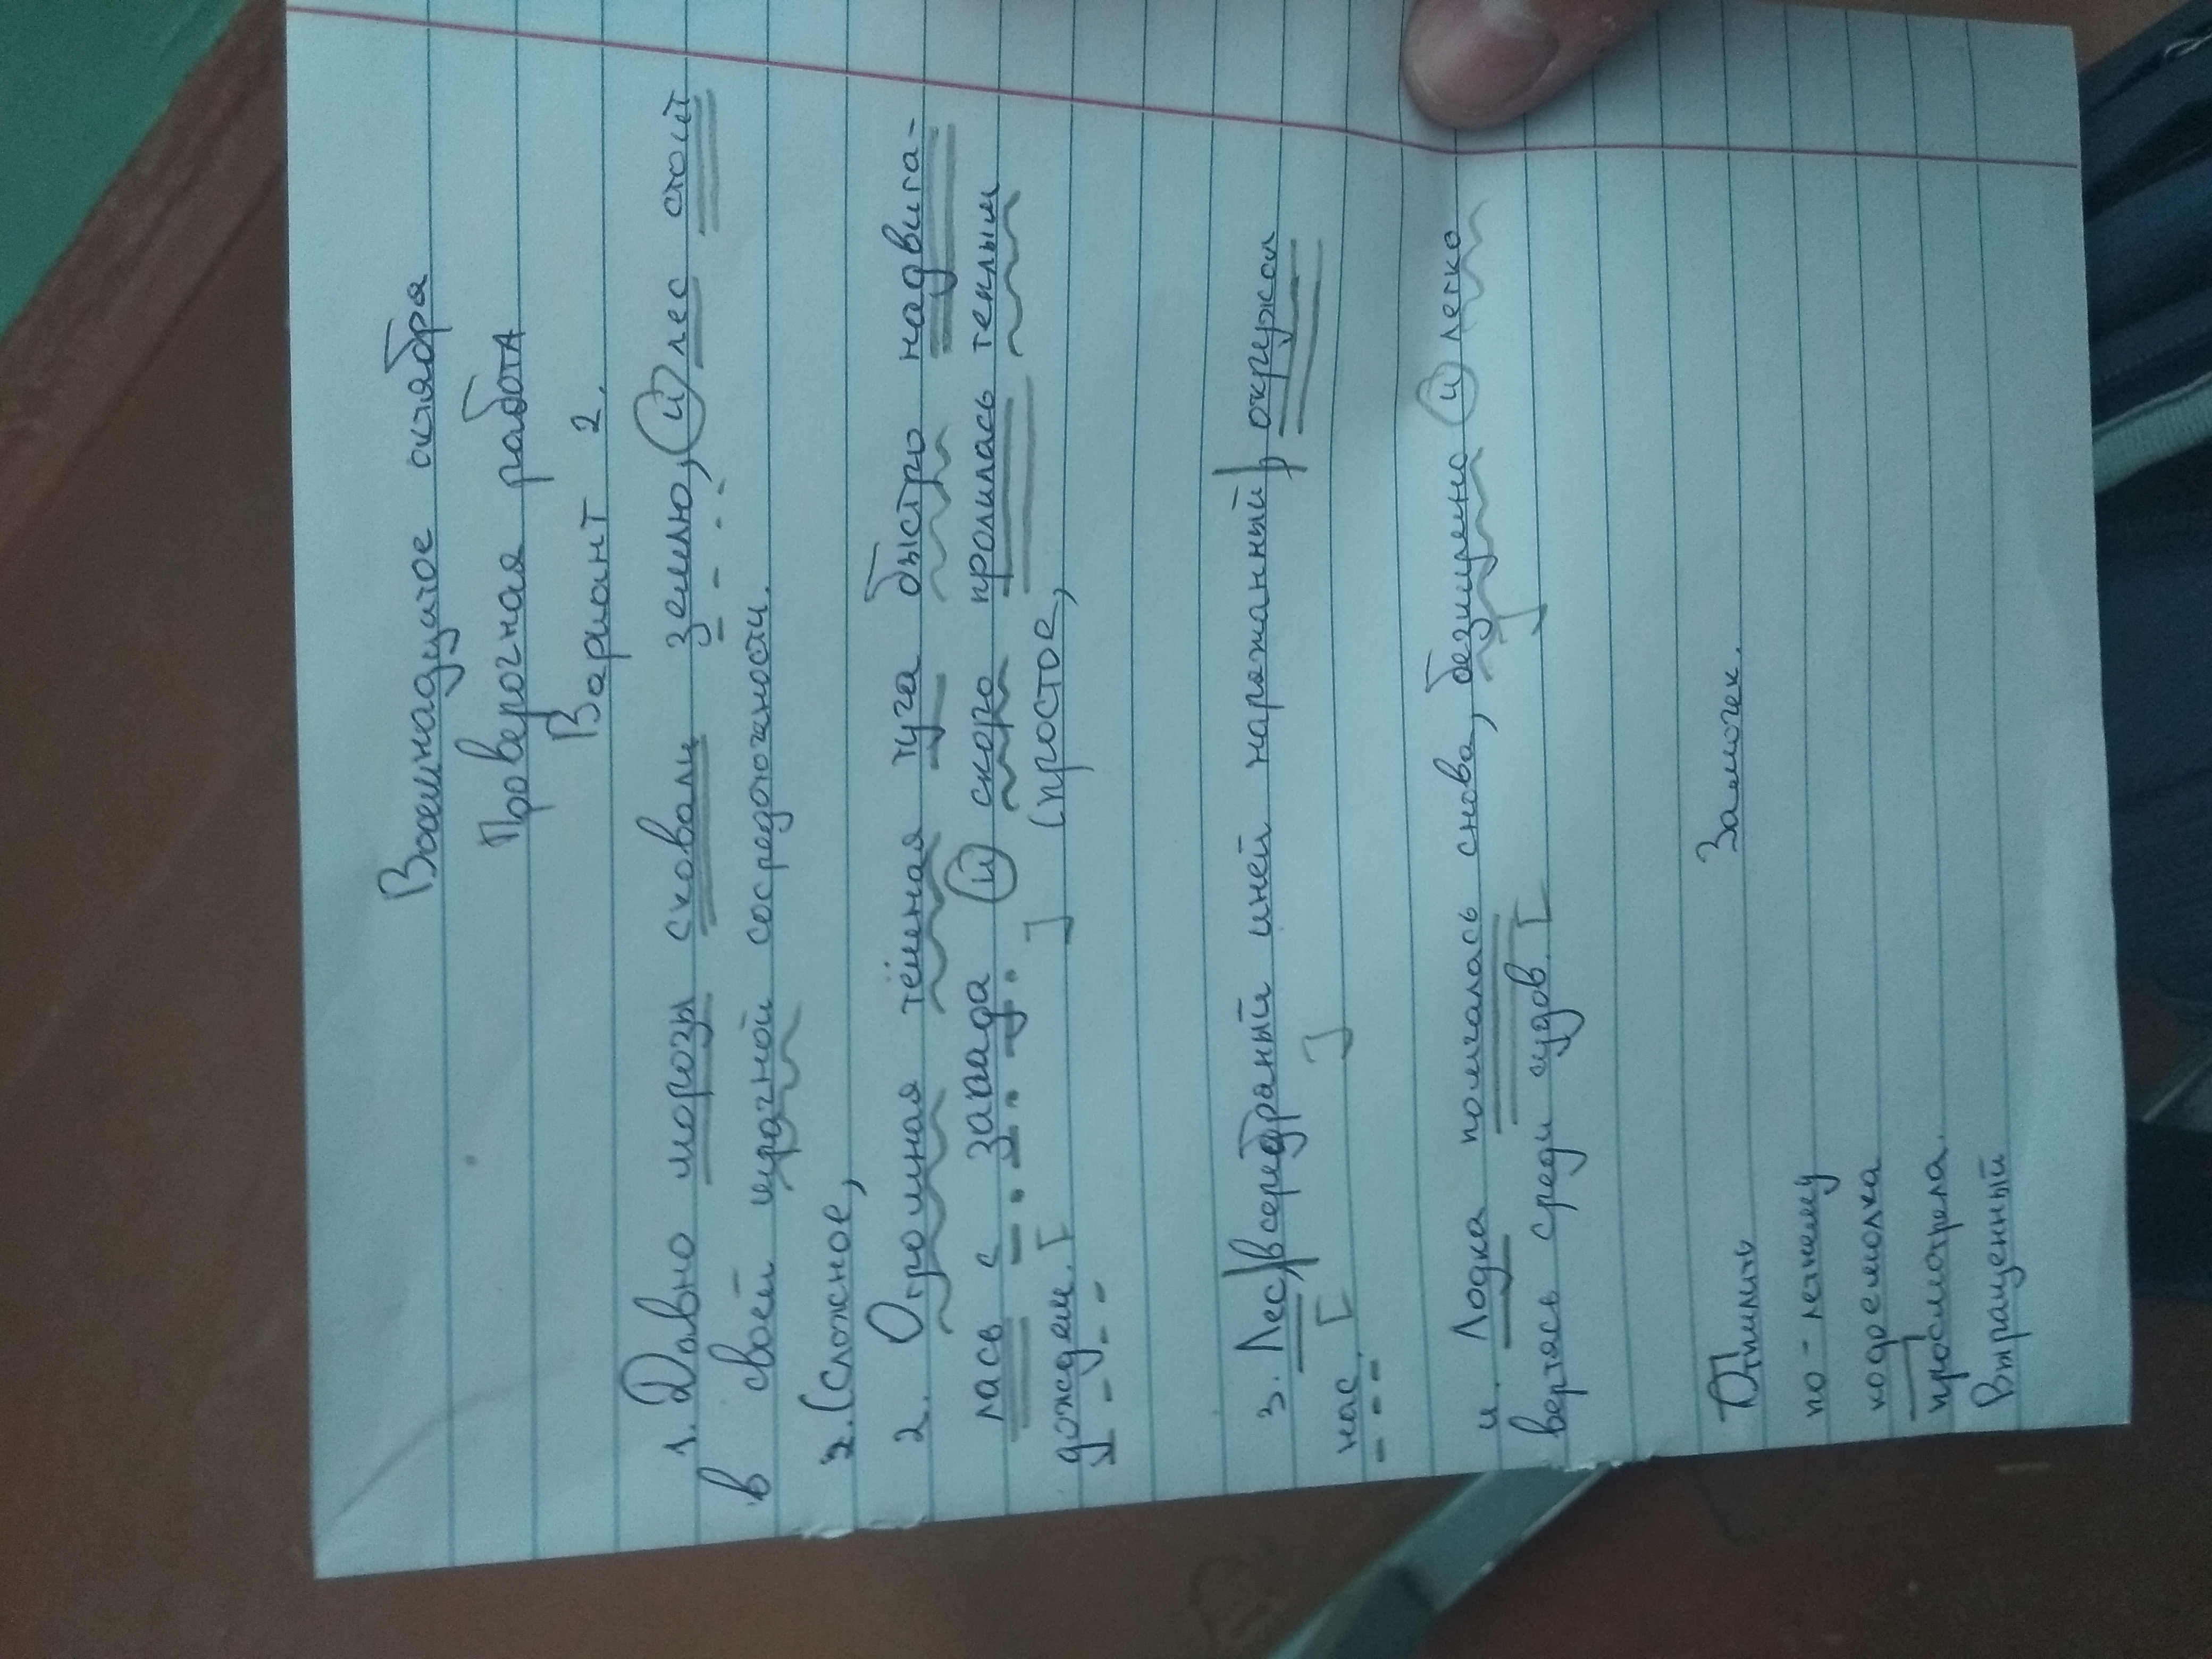 Восемнадцатое октября
Проверочная работа
Вариант 2.
1. Давно морозы сковали землю, и лес стоит
в своей мрачной сосредоточаности.
2. (Сложное,
2. Огромная тёмная туча быстро надвига-
лась с запада и скоро пролилась теплым
дождем. [ ] (простое,
3. Лес, в серебраный иней наряжанный, окружал
нас. [ ]
4. Лодка помчалась снова, безмцрено и легко
вертясь среди судов. [ ]
Отпилить Замочек.
по-летнему
подсмолка
просмотрела.
Выращенный